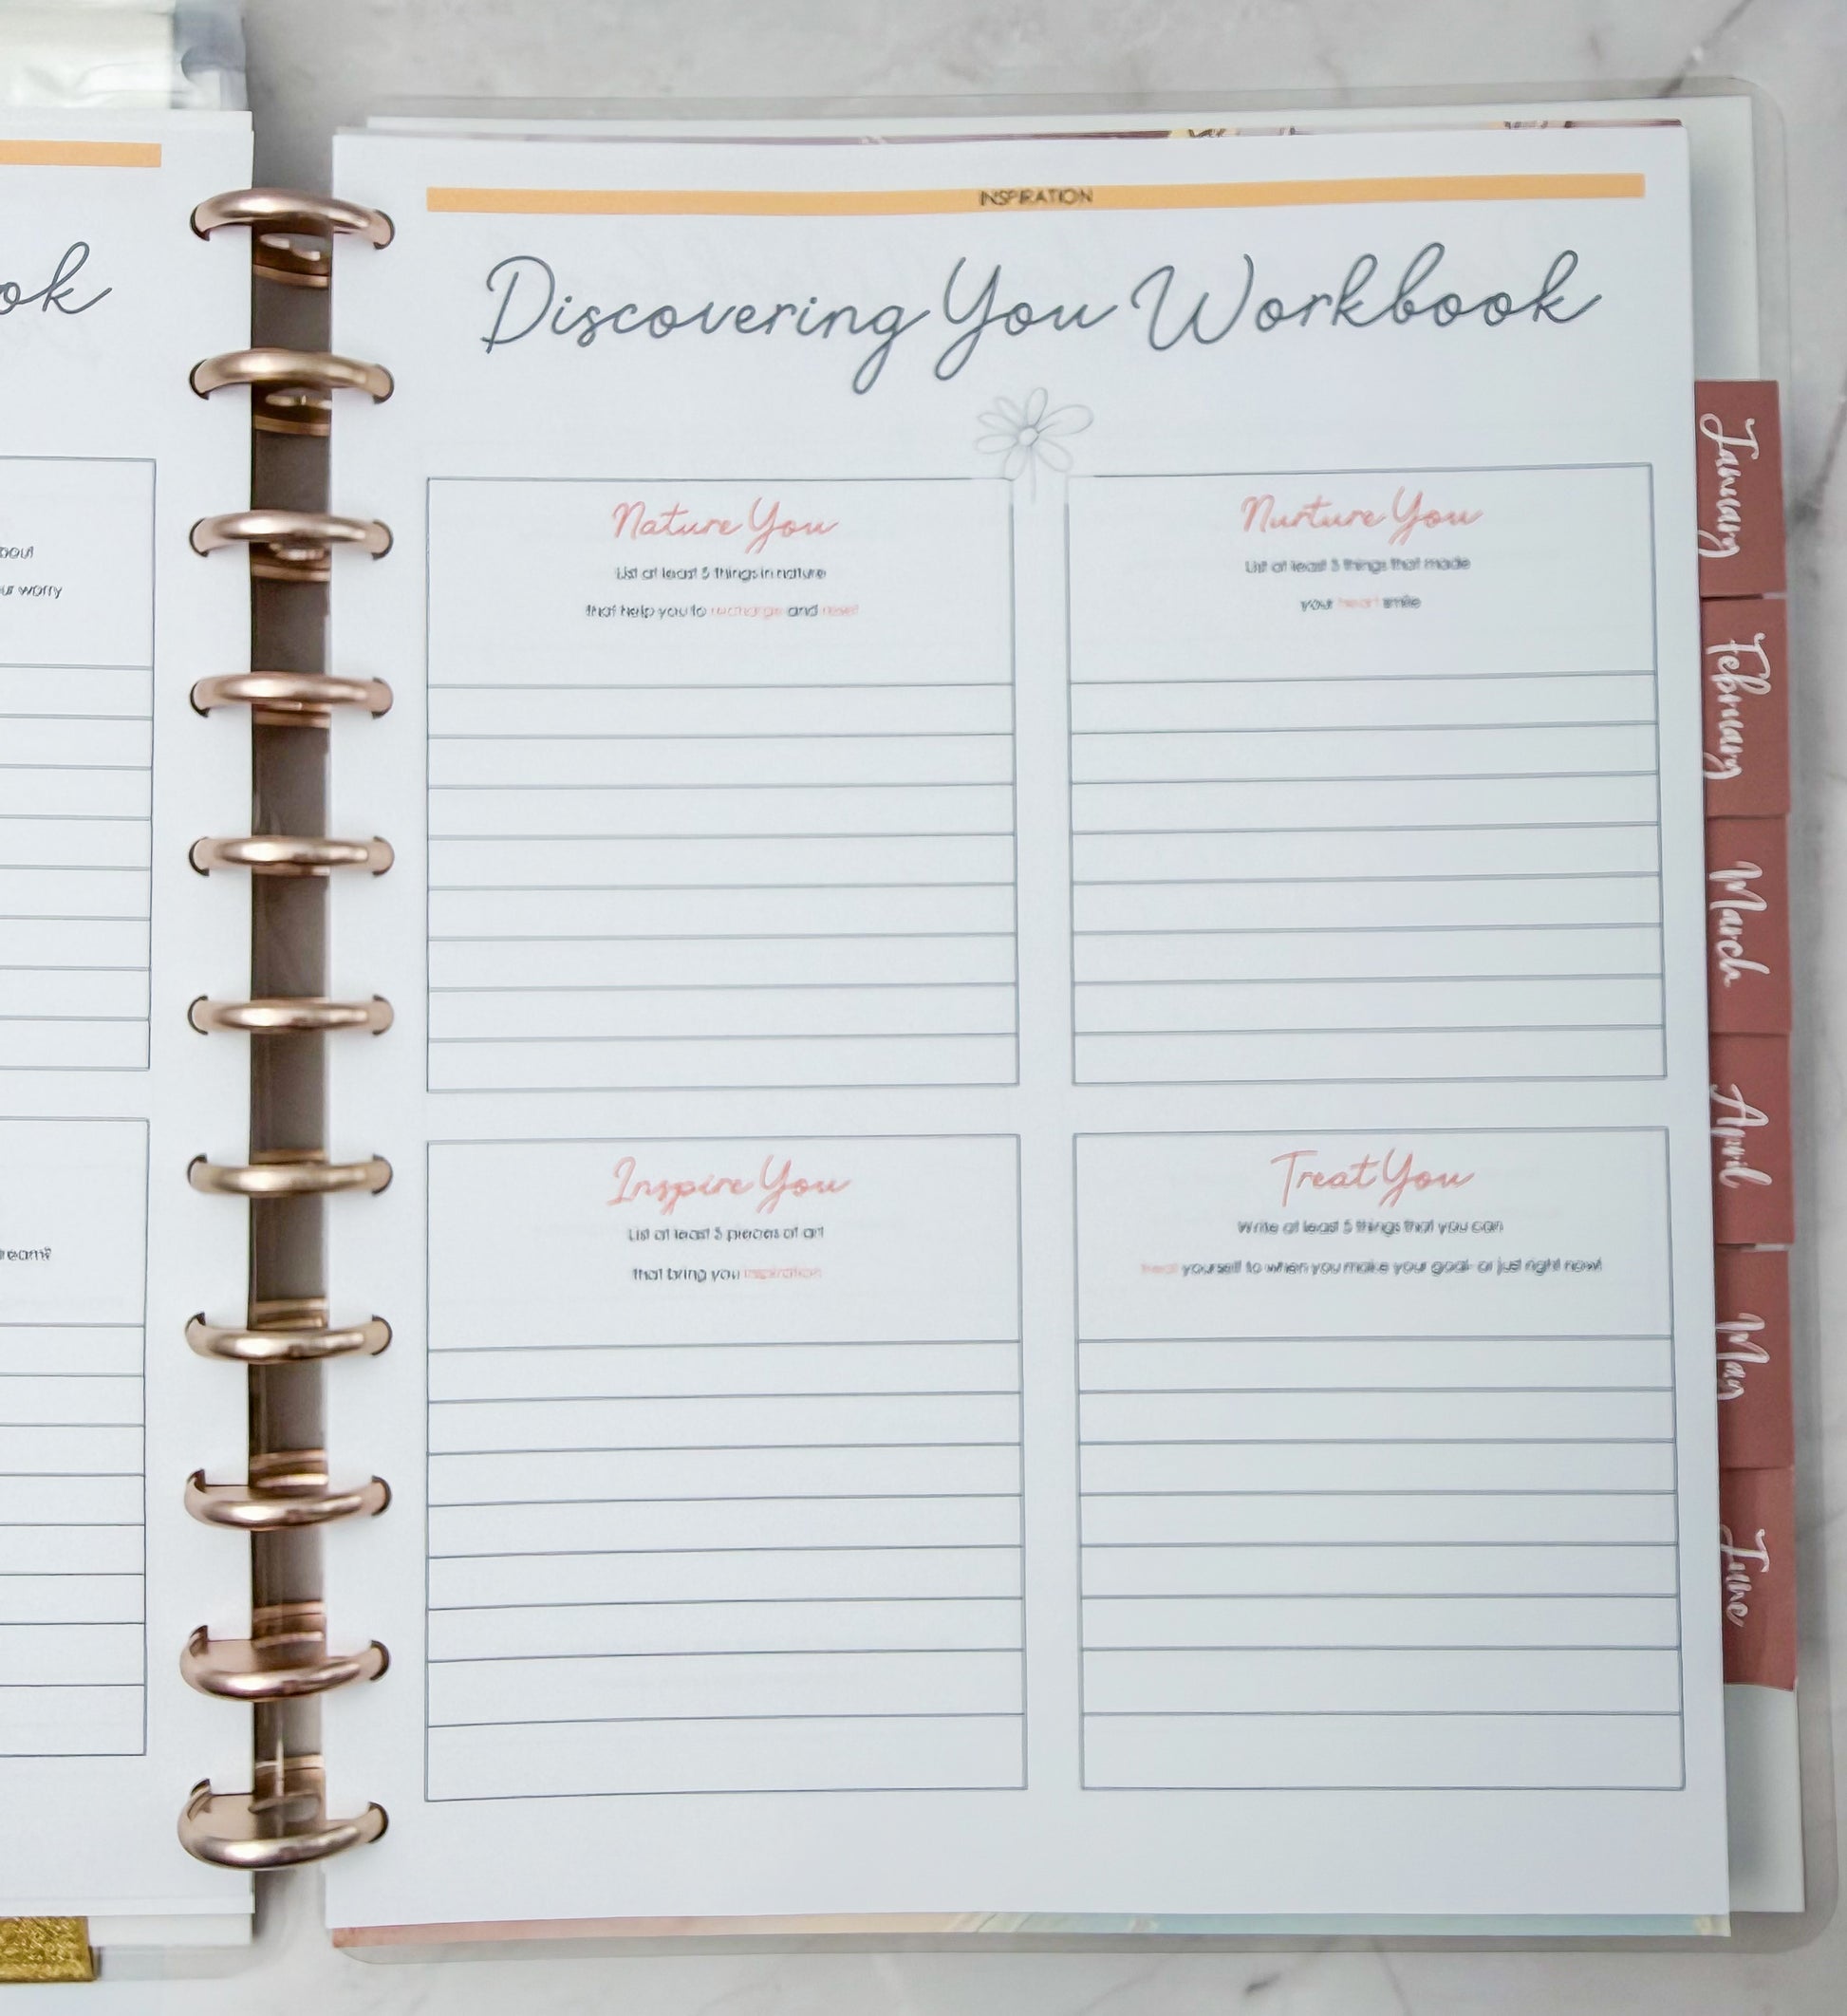 ok
bout
ur worry
ream?
INSPIRATION
Discovering You Workbook
Nature You
List at least 5 things in nature
that help you to recharge and reset
Nurture You
List at least 5 things that made
your heart smile
Inspire You
List at least 5 pieces of art
that bring you inspiration
Treat You
Write at least 5 things that you can
treat yourself to when you make your goal- or just right now!
January
February
March
April
May
June